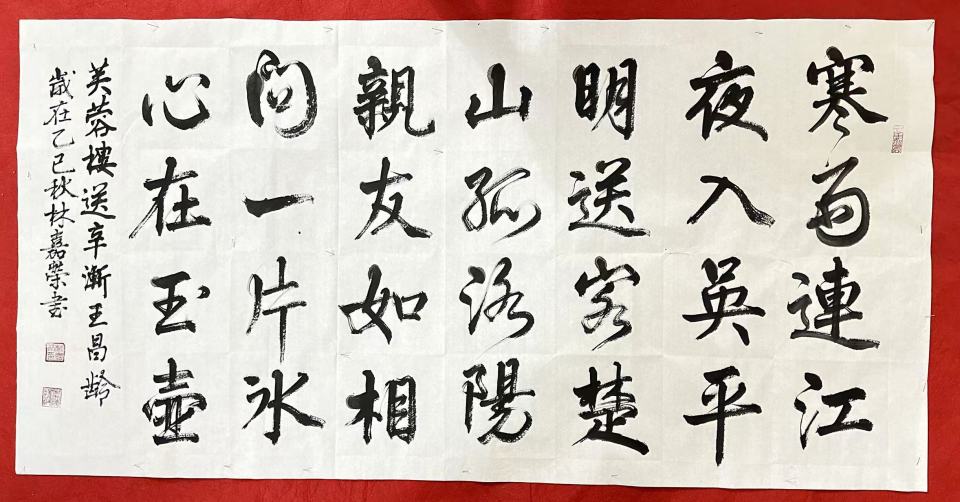 寒雨連江
夜入吳平
明送客楚
山孤洛陽
親友如相
問一片氷
心在玉壺
芙蓉樓送辛漸王昌齡
歲在乙巳秋林嘉榮書